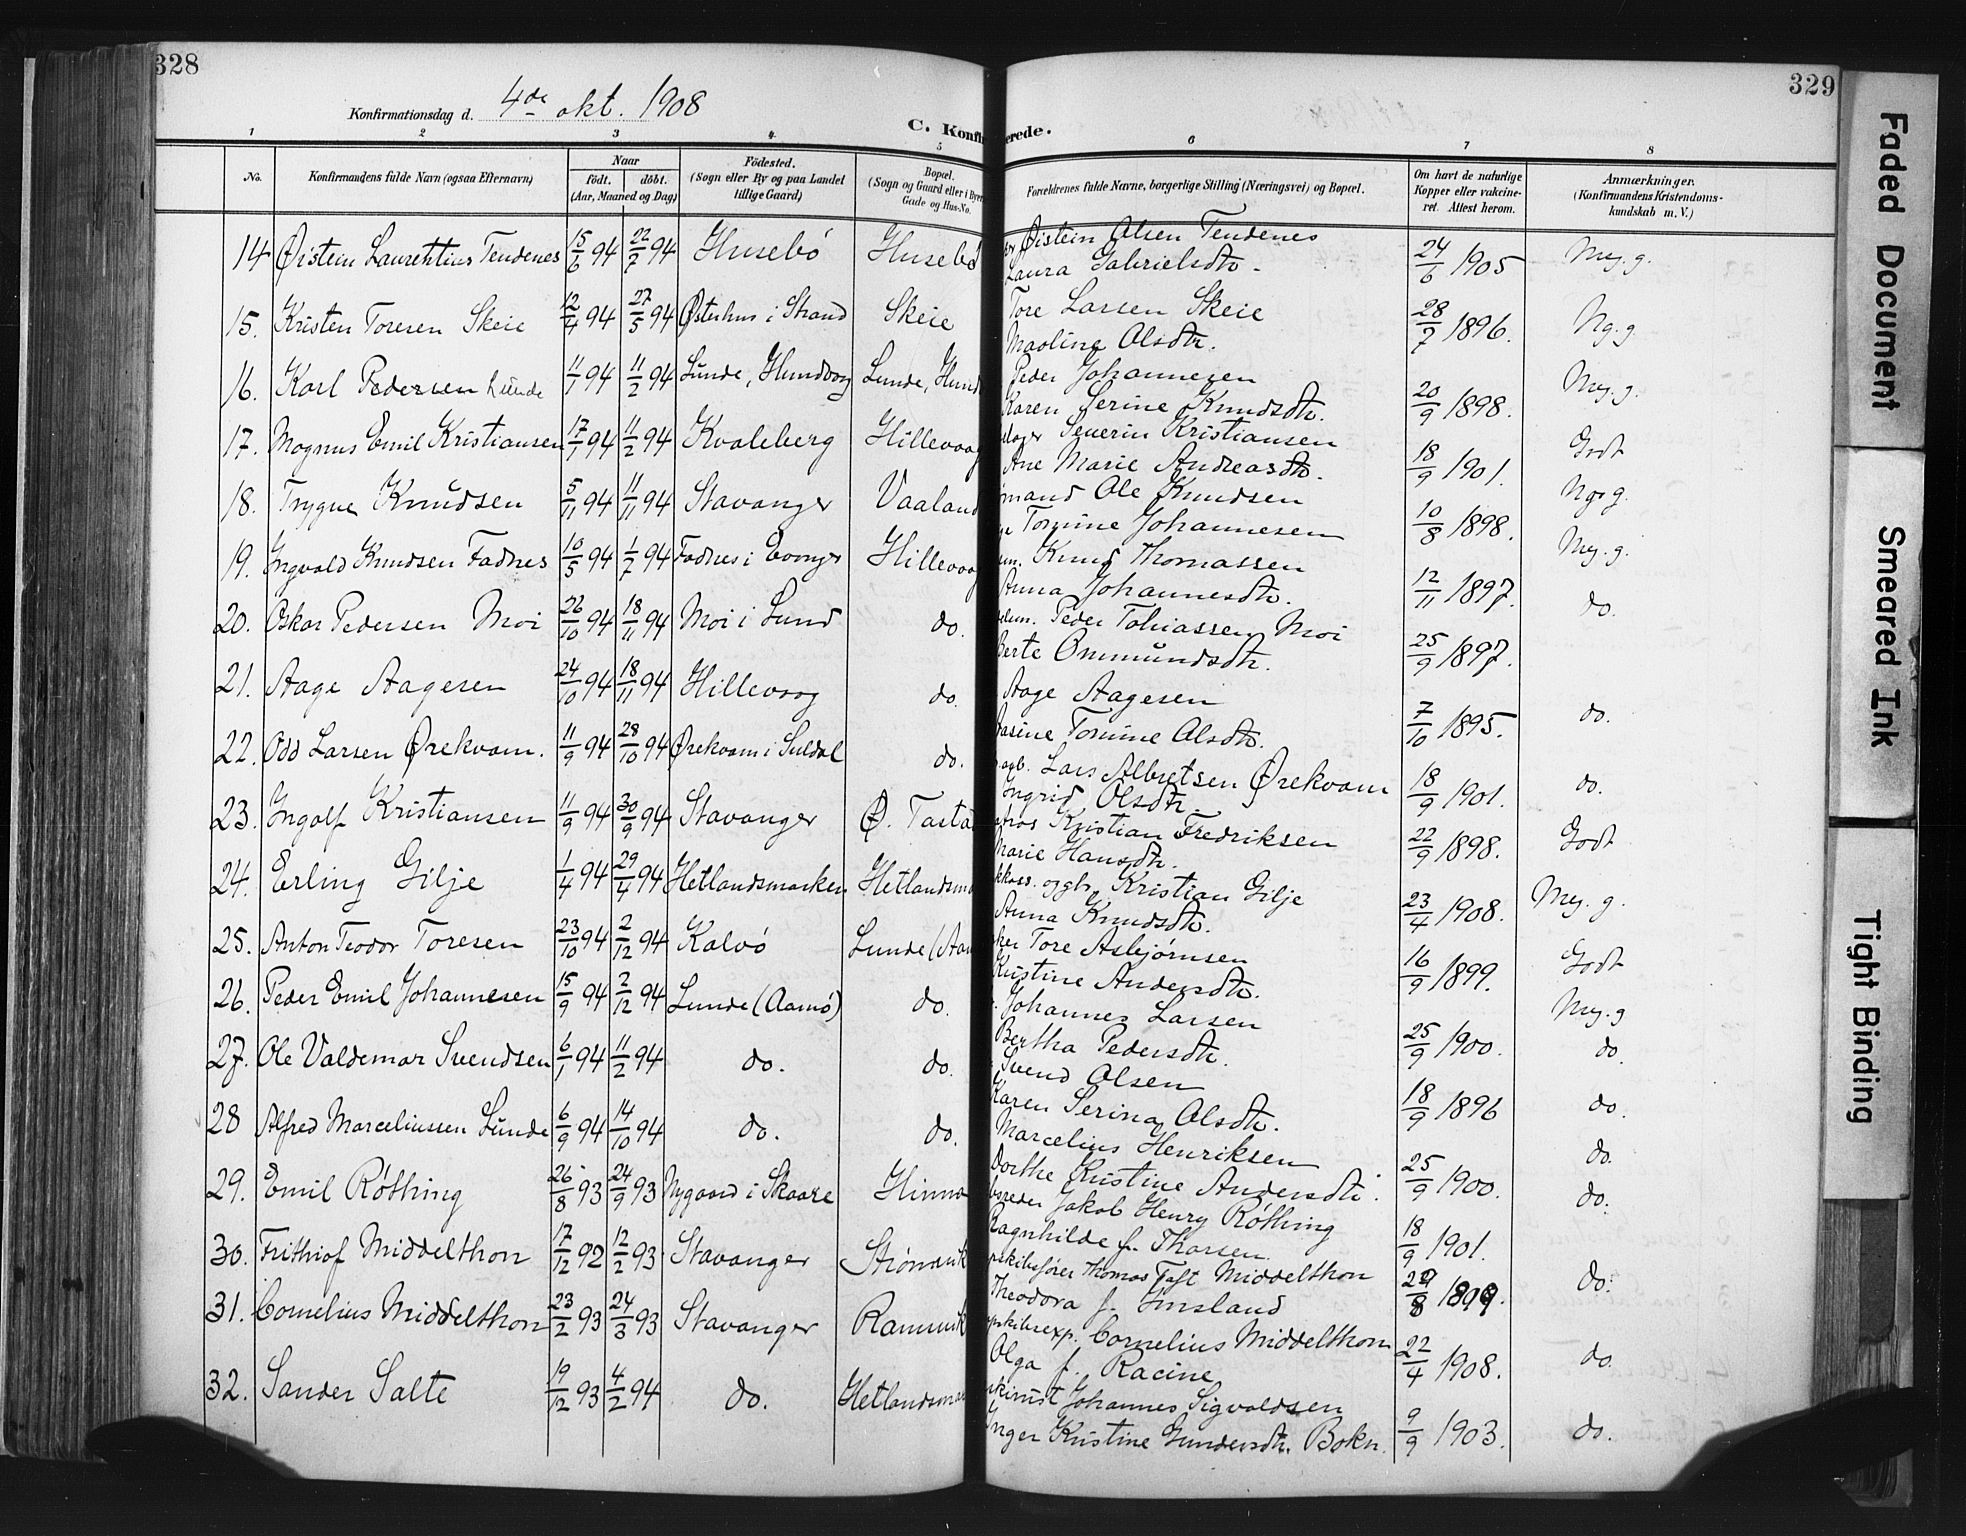 328
329
Konfirmationsdag d. 4de okt. 1908
C. Konfirmerede.
1 2 3 4 5 6 7 8
No.
Konfirmandens fulde Navn (ogsaa Efternavn)
Naar
födt. döbt.
(Aar, Maaned og Dag)
Födested.
(Sogn eller By og paa Landet
tillige Gaard)
Bopæl.
(Sogn og Gaard eller i Byen
Gade og Hus-No.
Forældrenes fulde Navne, borgerlige Stilling (Næringsvei) og Bopæl.
Om havt de naturlige
Kopper eller vakcine-
ret. Attest herom.
Anmærkninger.
(Konfirmandens Kristendoms-
kundskab m. V.)
14 Øistein Laurentius Tendenes 15/6 94 22/7 94 Husebö Husebö Øistein Olsen Tendenes 24/6 1905 Meg. g.
Laura Gabrielsdtr.
15. Kristen Toresen Skeie 12/4 94 27/5 94 Østerhus i Strand Skeie Tore Larsen Skeie 28/7 1896. Ng. g.
Maoline Olsdtr.
16. Karl Pedersen Lunde 11/1 94 11/2 94 Lunde, Hundvog Lunde, Hund Peder Johannesen 20/9 1898. Meg. g.
Karen Serine Knudsdtr.
17. Magnus Emil Kristiansen 17/1 94 11/2 94 Kvaleberg Hillevaag Severin Kristiansen 18/9 1901. Godt
Ane Marie Andreasdtr.
18. Trygve Knudsen 5/11 94 11/11 94 Stavanger Vaaland mand Ole Knudsen 10/8 1898. Ngs g.
Tomine Johannesen
19. Ingvald Knudsen Fadnes 10/5 94 1/7 94 Fadnes i Evanger Hillevaag Knud Thomassen 12/11 1897. Meg. g.
Anna Johannesdtr.
20. Oskar Pedersen Moi 26/10 94 18/11 94 Moi i Lund do. Peder Tobiassen Moi 25/9 1897. do.
Berte Ommundsdtr.
21. Aage Aagesen 24/10 94 18/11 94 Hillevaag do. Aage Aagesen 7/10 1895. do.
Tomine Olsdtr.
22. Odd Larsen Ørekvam. 11/9 94 28/10 94 Ørekvam i Suldal do. Lars Albretsen Ørekvam 18/9 1901. do.
Ingrid Olsdtr.
23. Ingolf Kristiansen 11/9 94 30/9 94 Stavanger Ø. Tasta Kristian Fredriksen 22/9 1898. Godt
Marie Hansdtr.
24. Erling Gilje 1/4 94 29/4 94 Hetlandsmarken Hetlandsma Kristian Gilje 23/4 1908. Meg. g.
Anna Knudsdtr.
25. Anton Teodor Toresen 23/10 94 2/12 94 Kalvö Lunde (Aam Tore Asbjørnsen 16/9 1899. Godt
Kristine Andersdtr.
26. Peder Emil Johannesen 15/9 94 2/12 94 Lunde (Aamö) do. Johannes Larsen 25/9 1900. Meg. g
Bertha Pedersdtr.
27. Ole Valdemar Svendsen 6/1 94 11/2 94 do. do. Svend Olsen 18/9 1896 do.
Karen Serina Olsdtr.
28 Alfred Marceliussen Lunde 6/9 94 14/10 94 do. do. Marcelius Henriksen 25/9 1900. do.
Dorthe Kristine Andersdtr.
do.
29. Emil Röthing 26/8 93 24/9 93 Nygaard i Skaare Hinna Jakob Henry Röthing 18/9 1901. do.
Ragnhilde f. Thorsen.
30. Frithiof Middelthon 17/12 92 12/2 93 Stavanger Strömvik Thomas Taft Middelthon do.
Theodora f. Imsland
31. Cornelius Middelthon 23/2 93 24/3 93 Stavanger Ramsvik Cornelius Middelthon 22/4 1908. do.
Olga f. Racine
32. Sander Salte 19/12 93 4/2 94 do. Hetlandsmar Johannes Sigvaldsen 9/9 1903. do.
Inger Kristine Gundersdtr. Bokn.
Faded Document
Smeared Ink
Tight Binding